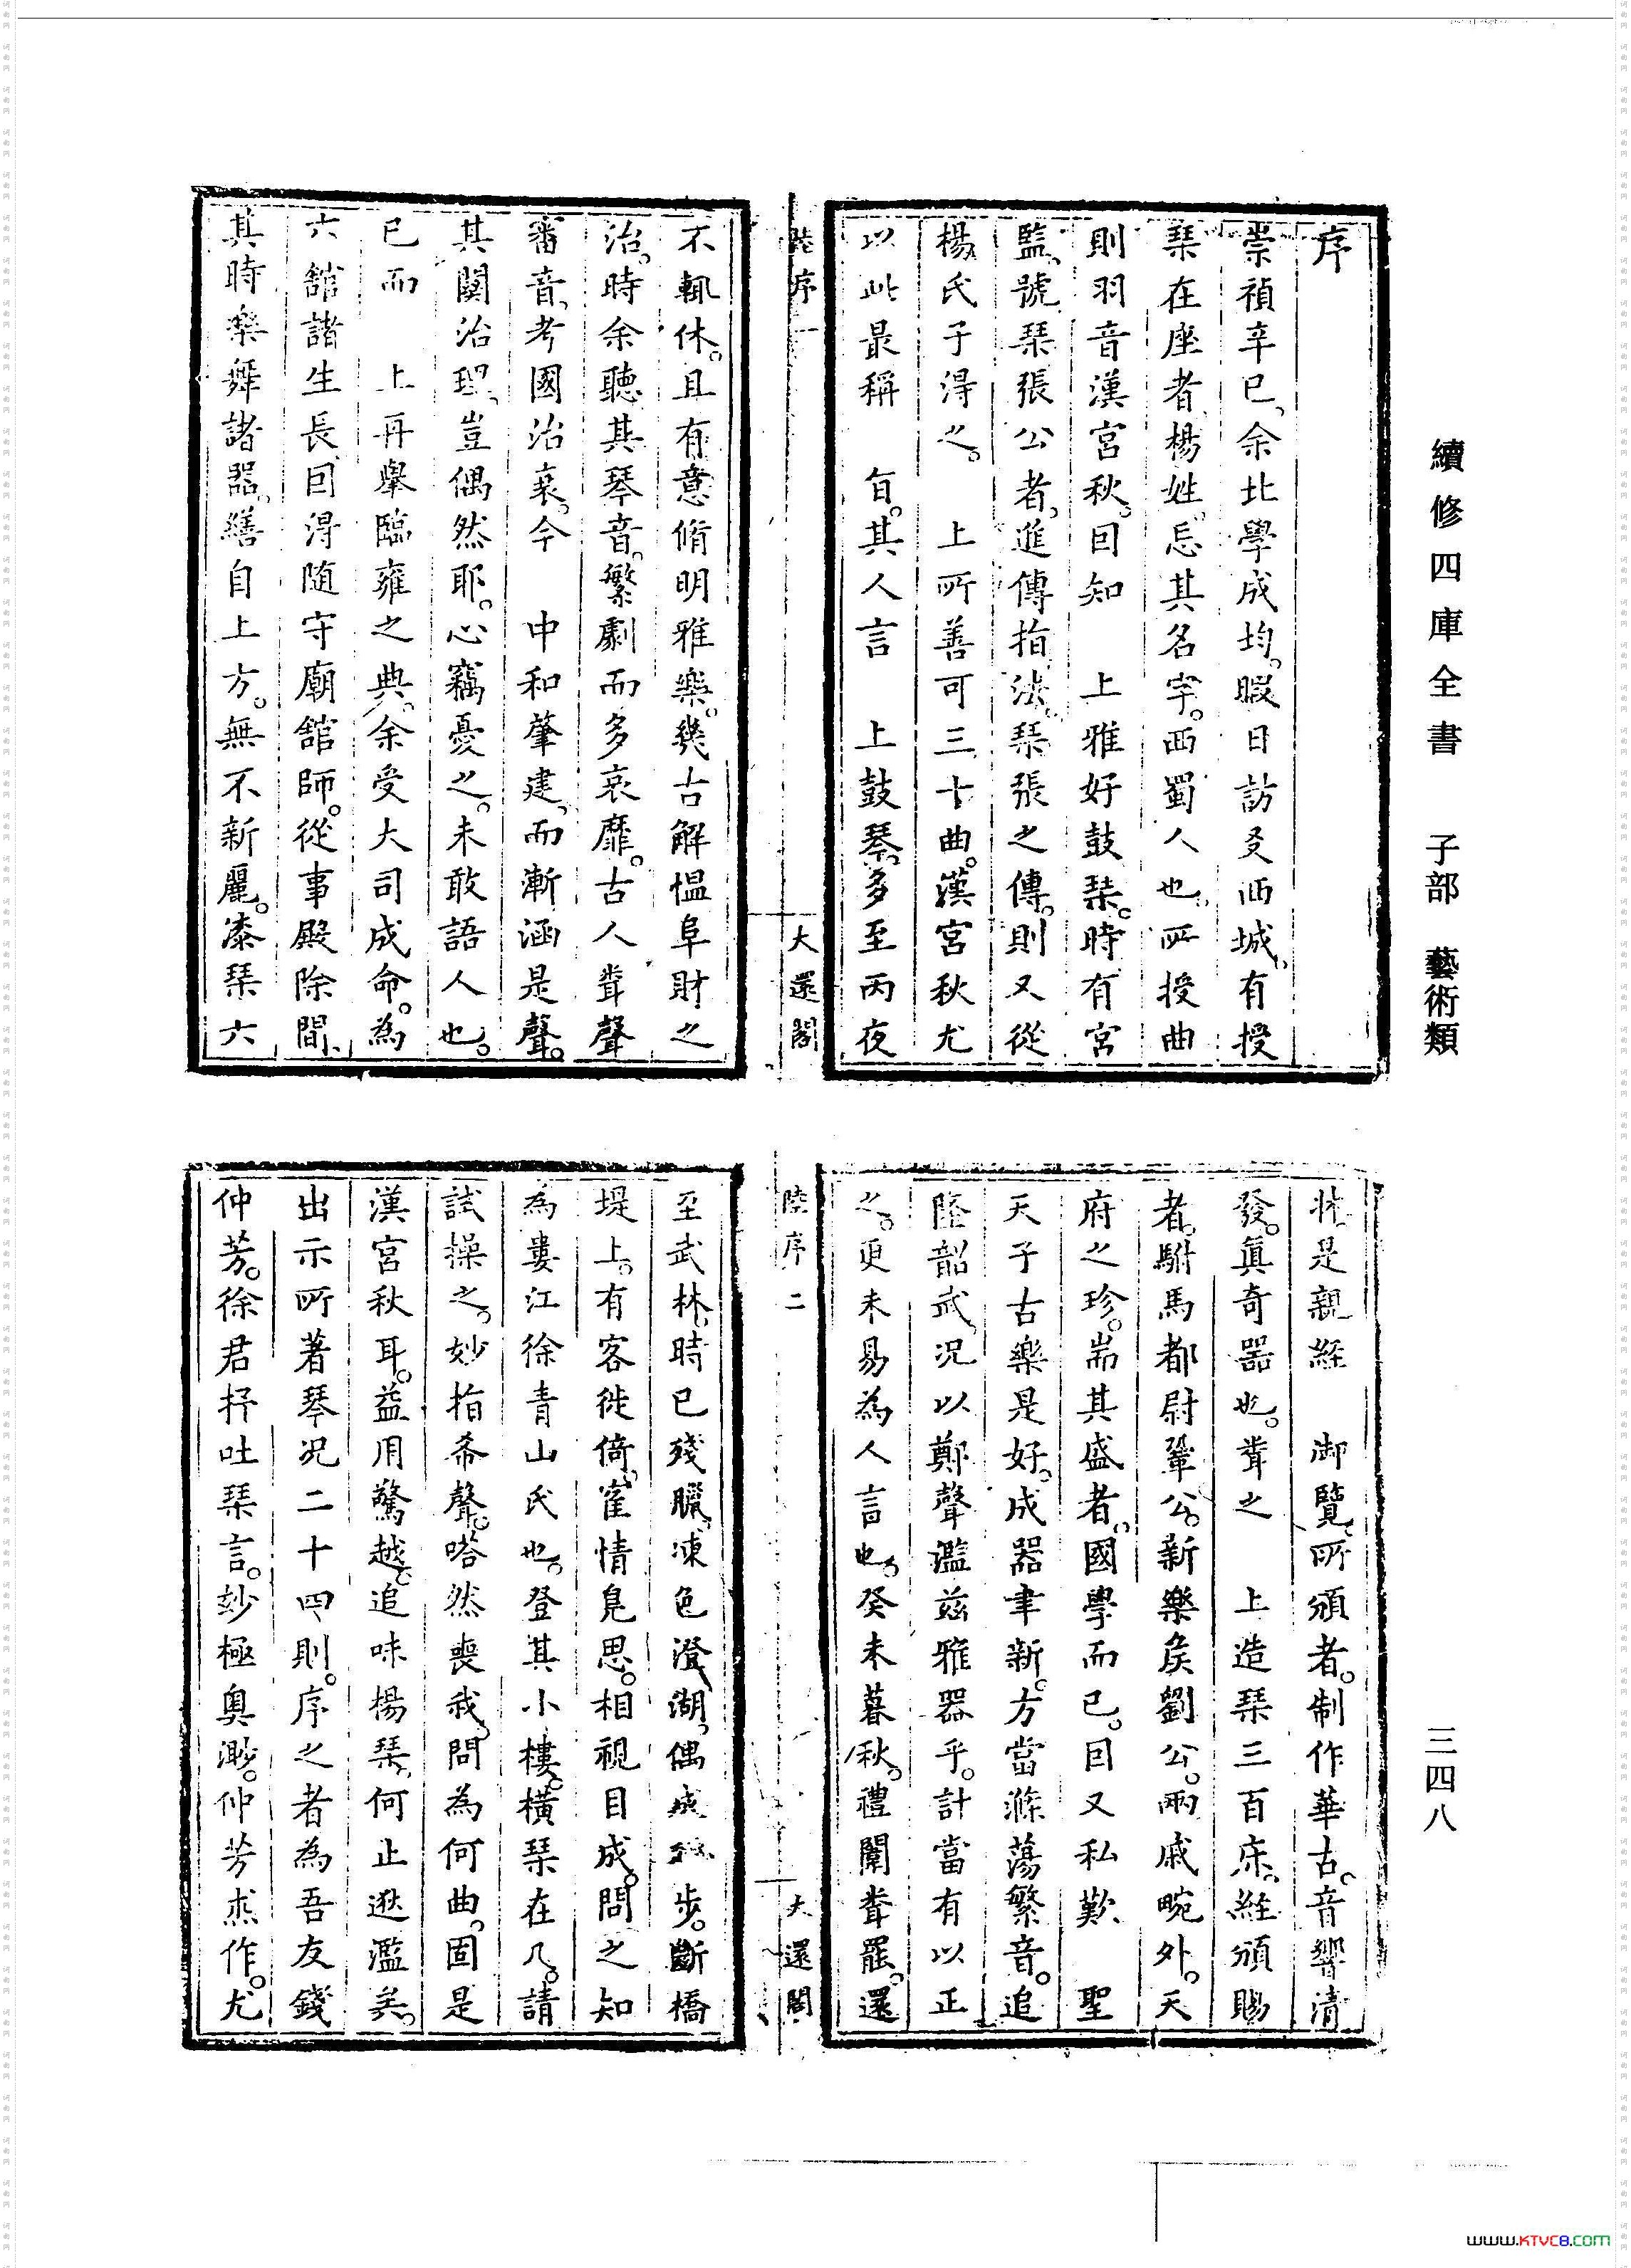 續修四庫全書 子部 藝術類
三四八
序
崇禎辛巳、余北學成均。暇日訪友西城、有授
琹在座者、楊姓、忘其名字。西蜀人也、所授曲
則羽音漢宮秋。因知 上雅好鼓琹。時有宮
監、號琹張公者、進傳指法。琹張之傳。則又從
楊氏子得之。 上所善可三十曲。漢宮秋尤
以此最稱 旨。其人言 上鼓琴。多至丙夜
陸序一 大還閣
不輒休。且有意脩明雅樂。幾古解慍阜財之
治。時余聽其琴音。繁劇而多哀靡。古人聋聲
審音、考國治衰。今 中和肇建、而漸涵是聲。
其關治理、豈偶然耶。心竊憂之。未敢語人也。
已而 上再舉臨雍之典。余受大司成命。為
六舘諸生長。因得随守廟舘師。從事殿除間、
其時樂舞諸器、繕自上方。無不新麗。漆琹六
壯是親經 御覽、所頒者。制作華古。音響清
發。眞奇器也。聋之 上造琹三百床、經頒賜
者。駙馬都尉鞏公。新樂矦劉公。兩戚畹外。天
府之珍。耑其盛者。國學而已。因又私歎 聖
天子古樂是好。成器聿新。方當滌蕩繁音。追
隆韶武、况以鄭聲濫兹雅器乎。計當有以正
之。更未易為人言也。癸未暮秋。禮闈聋罷。還
陸序二 大還閣
至武林、時已殘臘、凍色澄湖、偶成 步。斷橋
堤上。有客徙倚、寉情鳬思。相視目成。問之知
為婁江徐青山氏也。登其小樓。横琹在几。請
試操之、妙指希聲。嗒然喪我、問為何曲。固是
漢宮秋耳。益用驚越。追味楊琹、何止逖濫美。
出示所著琴况二十四則。序之者為吾友錢
仲芳。徐君抒吐琹言。妙極奥渺。仲芳焘作。尤
WWW.KTVC8.COM